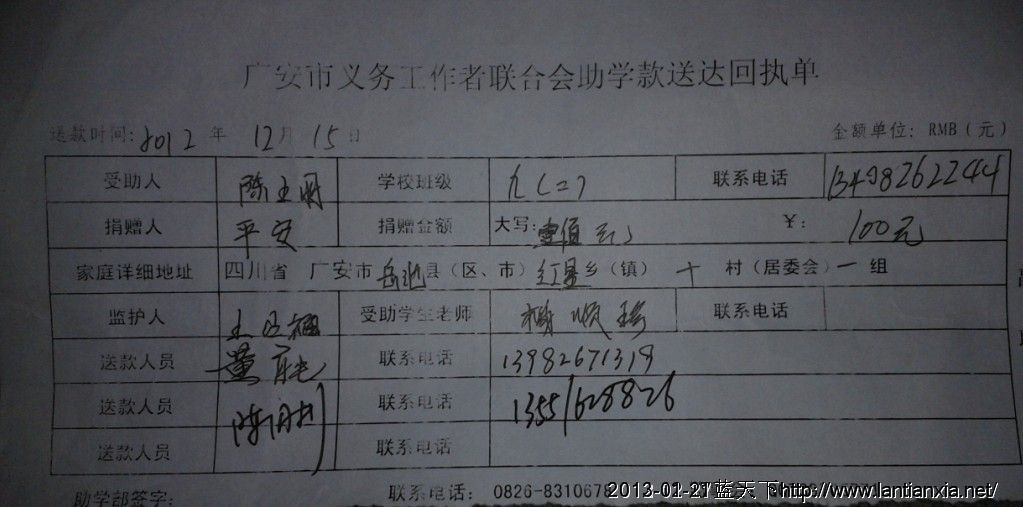 广安市义务工作者联合会助学款送达回执单
送款时间: 2012 年 12 月 15 日 金额单位: RMB（元）
受助人 陈 学校班级 九（二） 联系电话 13498262244
捐赠人 平安 捐赠金额 大写: 壹佰元 ¥: 100元
家庭详细地址 四川省 广安市 岳池 县（区、市） 红星 乡（镇） 十 村（居委会） 一 组
监护人 受助学生老师 联系电话
送款人员 董 联系电话 13982671319
送款人员 陈 联系电话 13551628826
送款人员 联系电话
助学部签字: 联系电话: 0826-831067
2013-01-27蓝天下http://www.lantianxia.net/